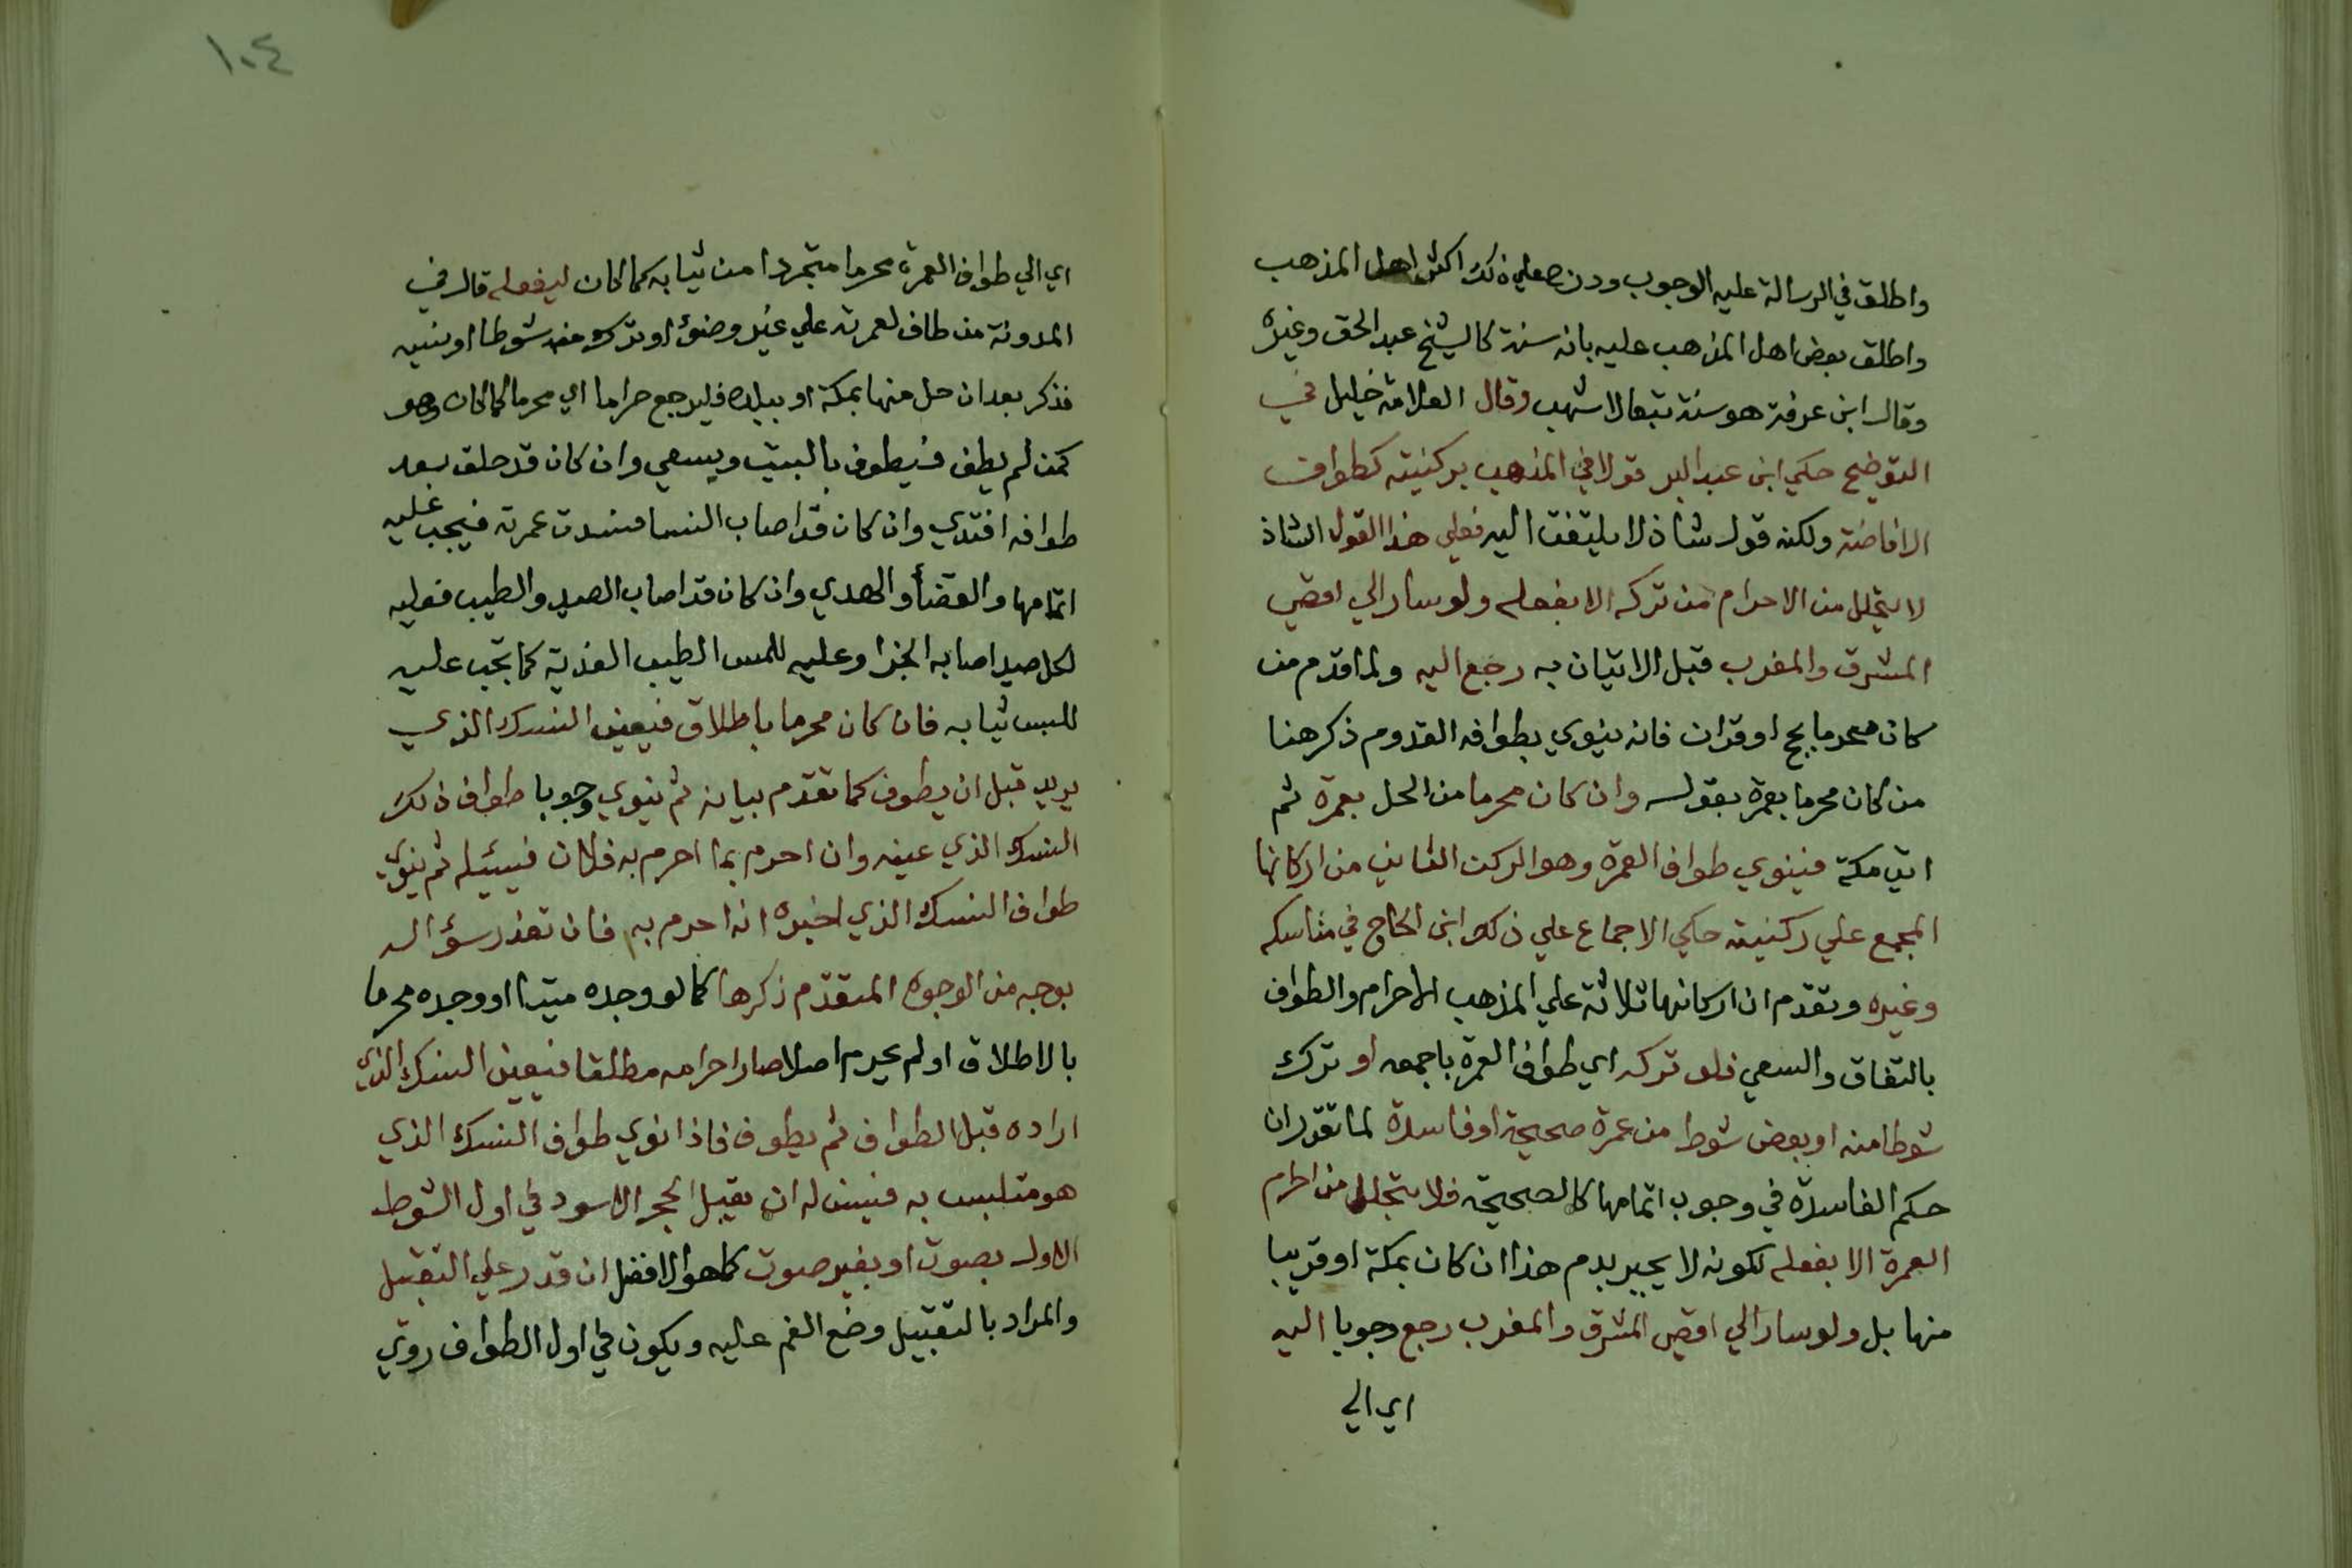 واطلق في الرسالة عليه الوجوب ودرج علي ذلك اكثر اهل المذهب
واطلق بعض اهل المذهب عليه بانه سنة كالشيخ عبد الحق وغيره
وقال ابن عرفة هو سنة تبعا لاشهب وقال العلامة خليل في
التوضيح حكي ابن عبد البر قولا في المذهب بركنيته كطواف
الافاضة ولكنه قول شاذ لا يلتفت اليه فعلي هذا القول الشاذ
لا يتحلل من الاحرام من تركه الا بفعله ولو سار الي اقصي
المشرق والمغرب قبل الاتيان به رجع اليه ولما قدم من
كان محرما بحج او قران فانه ينوي بطوافه القدوم ذكر هنا
من كان محرما بعمرة بقوله وان كان محرما من الحل بعمرة ثم
اتي مكة فينوي طواف العمرة وهو الركن الثاني من اركانها
المجمع علي ركنيته حكي الاجماع علي ذلك ابن الحاج في مناسكه
وغيره وتقدم ان اركانها ثلاثة علي المذهب الاحرام والطواف
بالتفاق والسعي فلو تركه اي طواف العمرة باجمعه او ترك
شوطا منه او بعض شوط من عمرة صحيحة او فاسدة لما تقرر ان
حكم الفاسدة في وجوب اتمامها كالصحيحة فلا يتحلل من احرام
العمرة الا بفعله لكونه لا يجبر بدم هذا ان كان بمكة او قريبا
منها بل ولو سار الي اقصي المشرق والمغرب رجع وجوبا اليه
اي الي
١٠٤
اي الي طواف العمرة محرما متجردا من ثيابه كما كان ليفعله قال في
المدونة من طاف لعمرته علي غير وضؤ او ترك منه شوطا او نسيه
فذكر بعد ان حل منها بمكة او ببلده فليرجع حراما اي محرما كما كان وهو
كمن لم يطف فيطوف بالبيت ويسعي وان كان قد حلق بعد
طوافه افتدي وان كان قد اصاب النسا فسدت عمرته فيجب عليه
اتمامها والقضأ والهدي وان كان قد اصاب الصيد والطيب فعليه
لكل صيد اصابه الجزا وعليه للمس الطيب الفدية كما تجب عليه
للبس ثيابه فان كان محرما باطلاق فيعين النسك الذي
يريد قبل ان يطوف كما تقدم بيانه ثم ينوي وجوبا طواف ذلك
النسك الذي عينه وان احرم بما احرم به فلان فيسئله ثم ينوي
طواف النسك الذي اخبره انه احرم به فان تعذر سؤاله
بوجه من الوجوه المتقدم ذكرها كما لو وجده ميتا او وجده محرما
بالاطلاق او لم يحرم اصلا صار احرامه مطلقا فيعين النسك الذي
اراده قبل الطواف ثم يطوف فاذا نوي طواف النسك الذي
هو متلبس به فيسن له ان يقبل الحجر الاسود في اول الشوط
الاول بصوت او بغير صوت كما هو الافضل ان قدر علي التقبيل
والمراد بالتقبيل وضع الفم عليه ويكون في اول الطواف روي